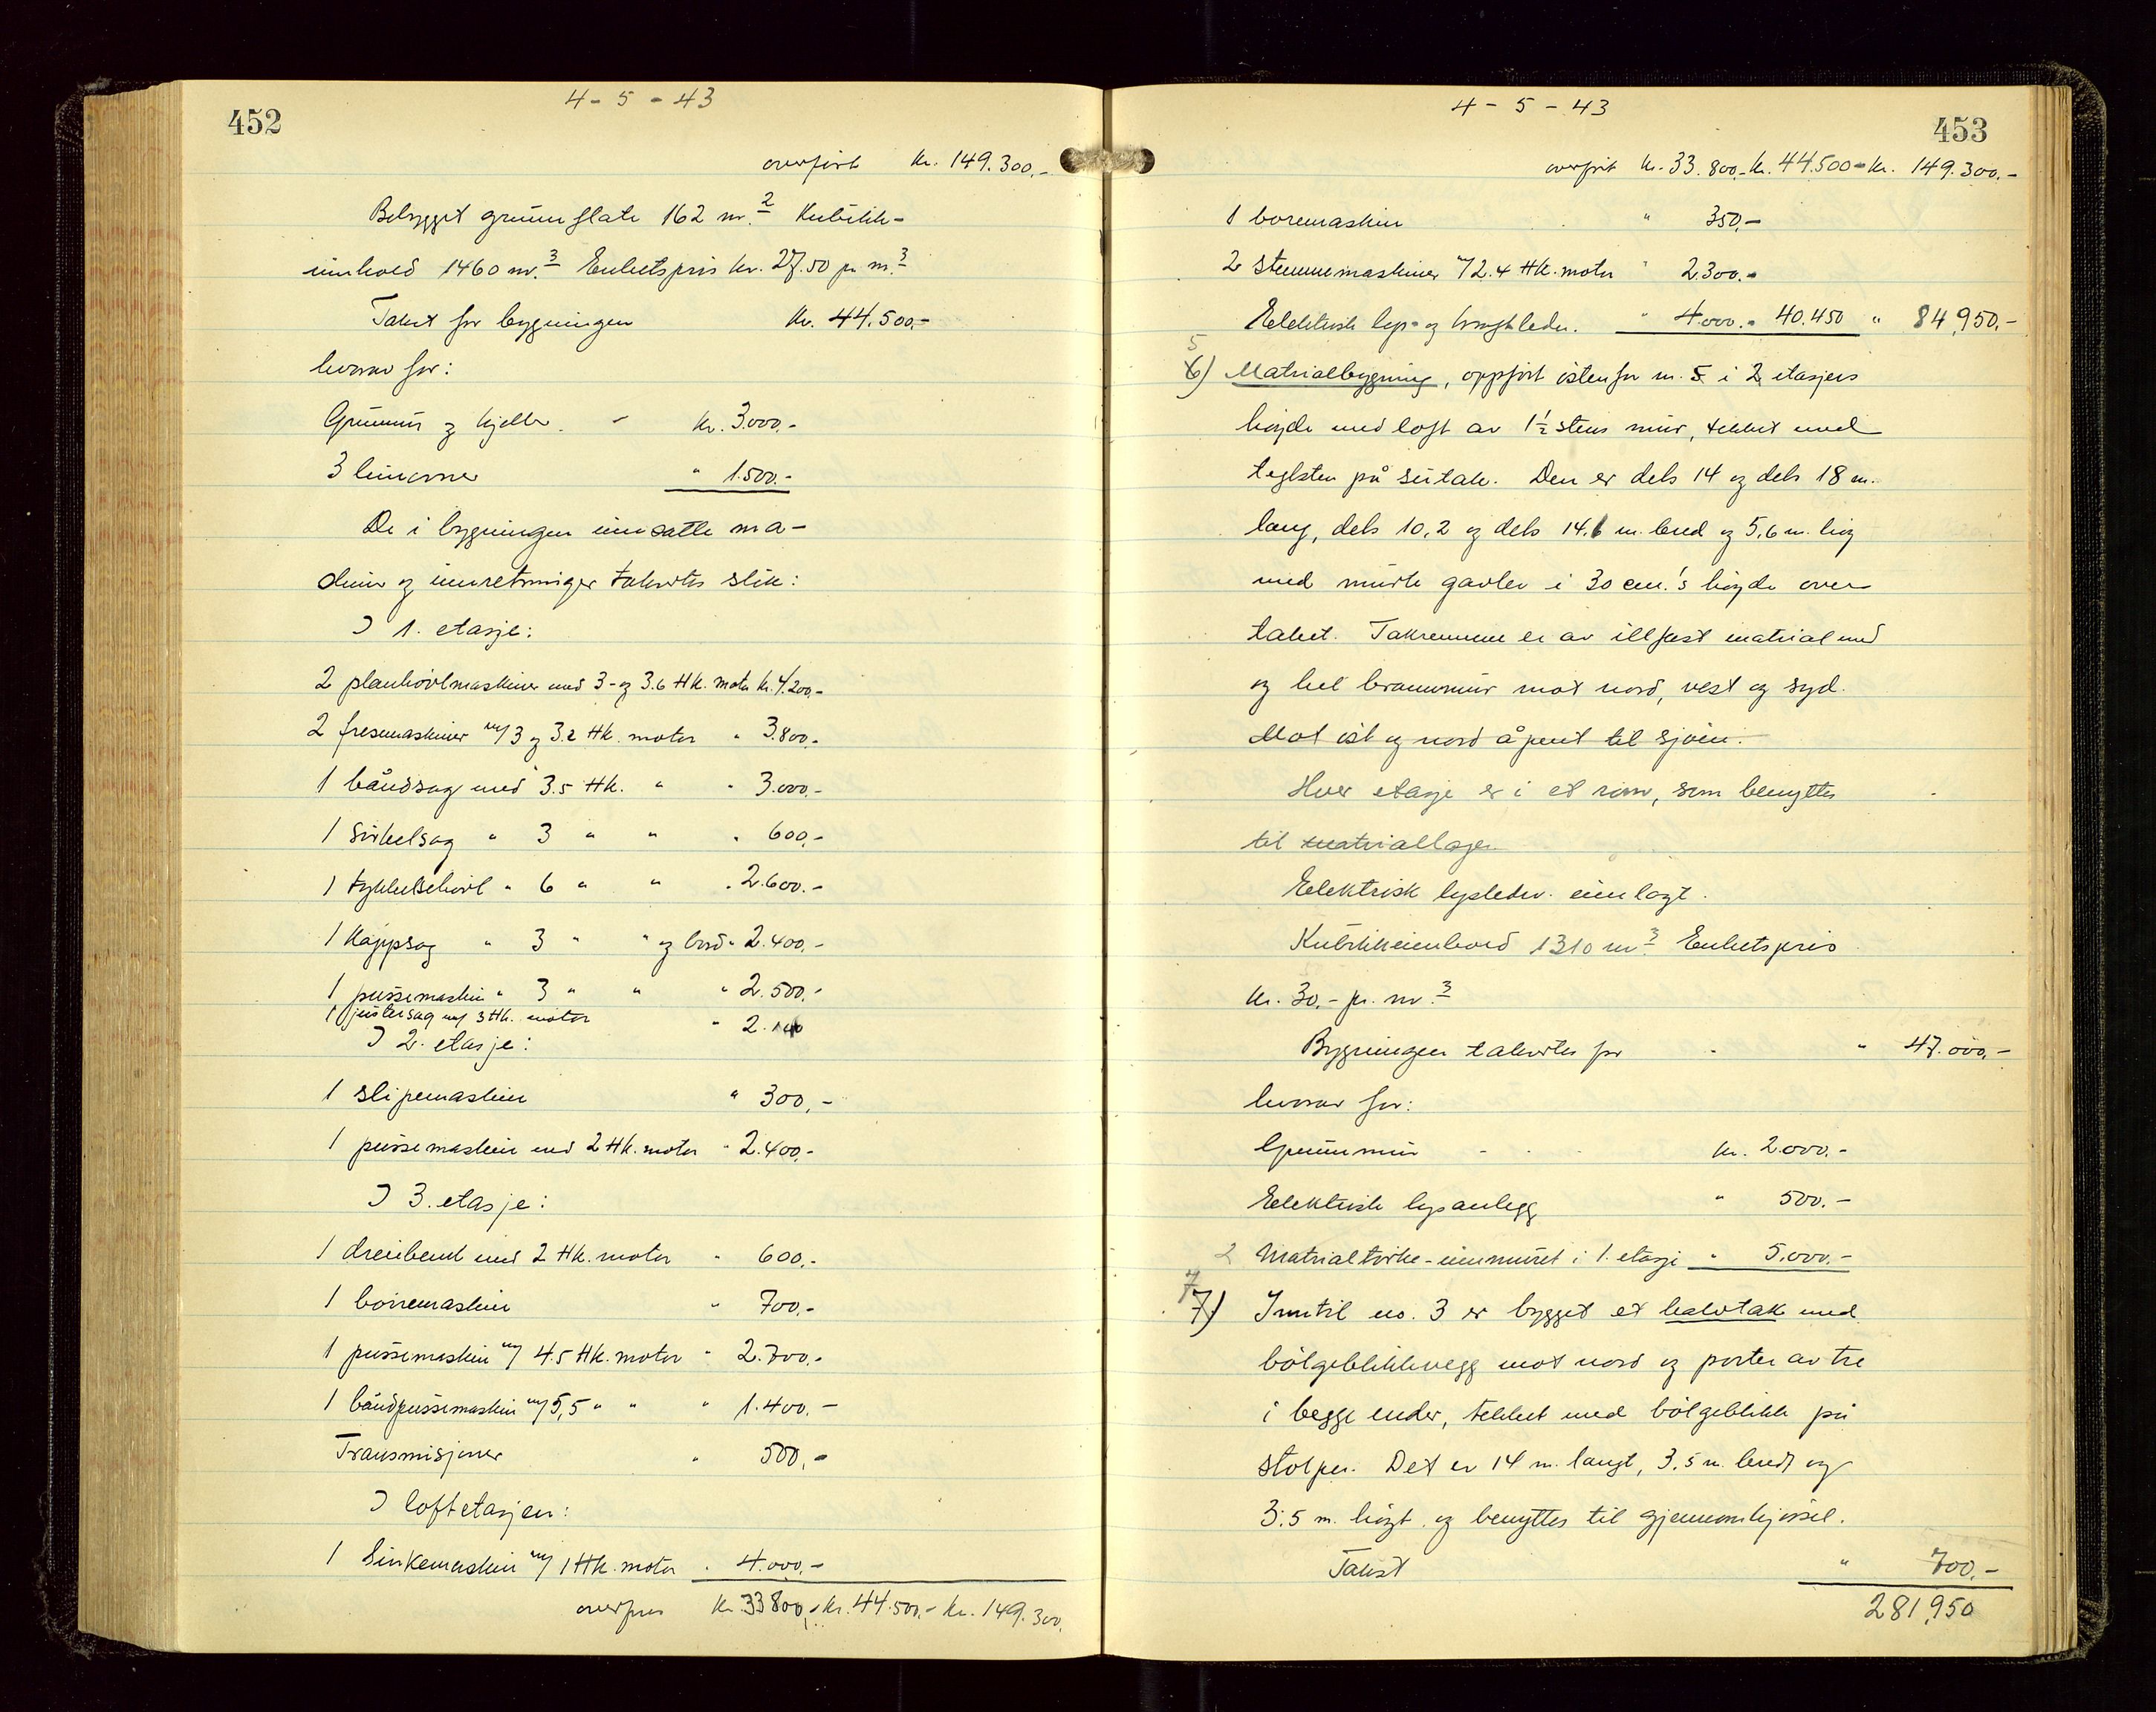 452
4 - 5 - 43
overført Kr. 149.300,-
Bebygget grunnflate 162 m.2 Kubikk-
innhold 1460 m.3 Enhetspris kr. 27.50 pr m.3
Takst for bygningen Kr. 44.500,-
hvorav for:
Grunnmur og kjeller - kr. 3.000.-
3 limovner " 1.500.-
De i bygningen innsatte ma-
skiner og innretninger takertes slik:
I 1. etasje:
2 planhövlmaskiner med 3- og 3.6 HK. motor kr. 4.200,-
2 fresemaskiner m/ 3 og 3.2 HK. motor " 3.800,-
1 båndsag med 3.5 HK. " " 3.000,-
1 Sirkelsag " 3 " " " 600,-
1 tykkelseshövl " 6 " " " 2.600.-
1 Kappsag " 3 " " og bord " 2.400,-
1 pussemaskin " 3 " " " 2.500,-
1 justersag m/ 3 HK. motor " 2.100
I 2. etasje:
1 slipemaskin " 300,-
1 pussemaskin med 2 HK. motor " 2.400,-
I 3. etasje:
1 dreiebenk med 2 HK. motor " 600,-
1 boremaskin " 700,-
1 pussemaskin m/ 4.5 HK. motor " 2.700,-
1 båndpussemaskin m/ 5,5 " " " 1.400.-
Transmisjoner " 500,-
I loftetasjen:
1 Sinkemaskin m/ 1 HK. motor " 4.000,-
overføres Kr. 33800,- Kr. 44.500,- Kr. 149.300.
453
4 - 5 - 43
overført Kr. 33.800,- Kr. 44.500- Kr. 149.300.-
1 boremaskin " 350,-
2 stemmemaskiner m/ 2.4 HK. motor " 2.300.-
Elektrisk lys- og kraftledn. " 4.000.- 40.450 " 84,950,-
5
6) Matrialbygning, oppført östenfor nr. 5 i 2 etasjers
höyde med loft av 1½ stens mur, tekket med
teglsten på sutak. Den er dels 14 og dels 18 m.
lang, dels 10,2 og dels 14,6 m. bred og 5,6 m. höy
med murte gavler i 30 cm.'s höyde over
taket. Takrennene er av illfast matrial med
og hel brannmur mot nord, vest og syd.
Mot öst og nord åpent til sjöen.
Hver etasje er i et rum, som benyttes
til matriallager
Elektrisk lysledn. innlagt.
Kubikkinnhold 1310 m.3 Enhetspris
kr. 30,- pr. m.3
Bygningen takertes for " 47.000,-
hvorav for:
Grunnmur - - - kr. 2.000.-
Elektrisk lysanlegg " 500.-
2 Matrialtörke-innmuret i 1. etasje " 5,000.-
7
7) Inntil no. 3 er bygget et halvtak med
bölgeblikkvegg mot nord og porter av tre
i begge ender, tekket med bölgeblikk på
stolper. Det er 14 m. langt, 3,5 m. bredt og
3.5 m. höyt og benyttes til gjennomkjörsel.
Takst " 700,-
281,950